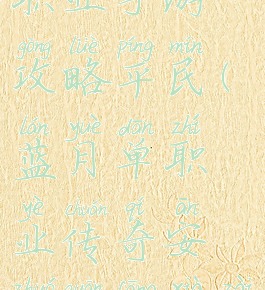 职业传奇游
gōng lüè píng mín
攻略平民（
lán yuè dān zhí
蓝月单职
yè chuán qí ān
业传奇安